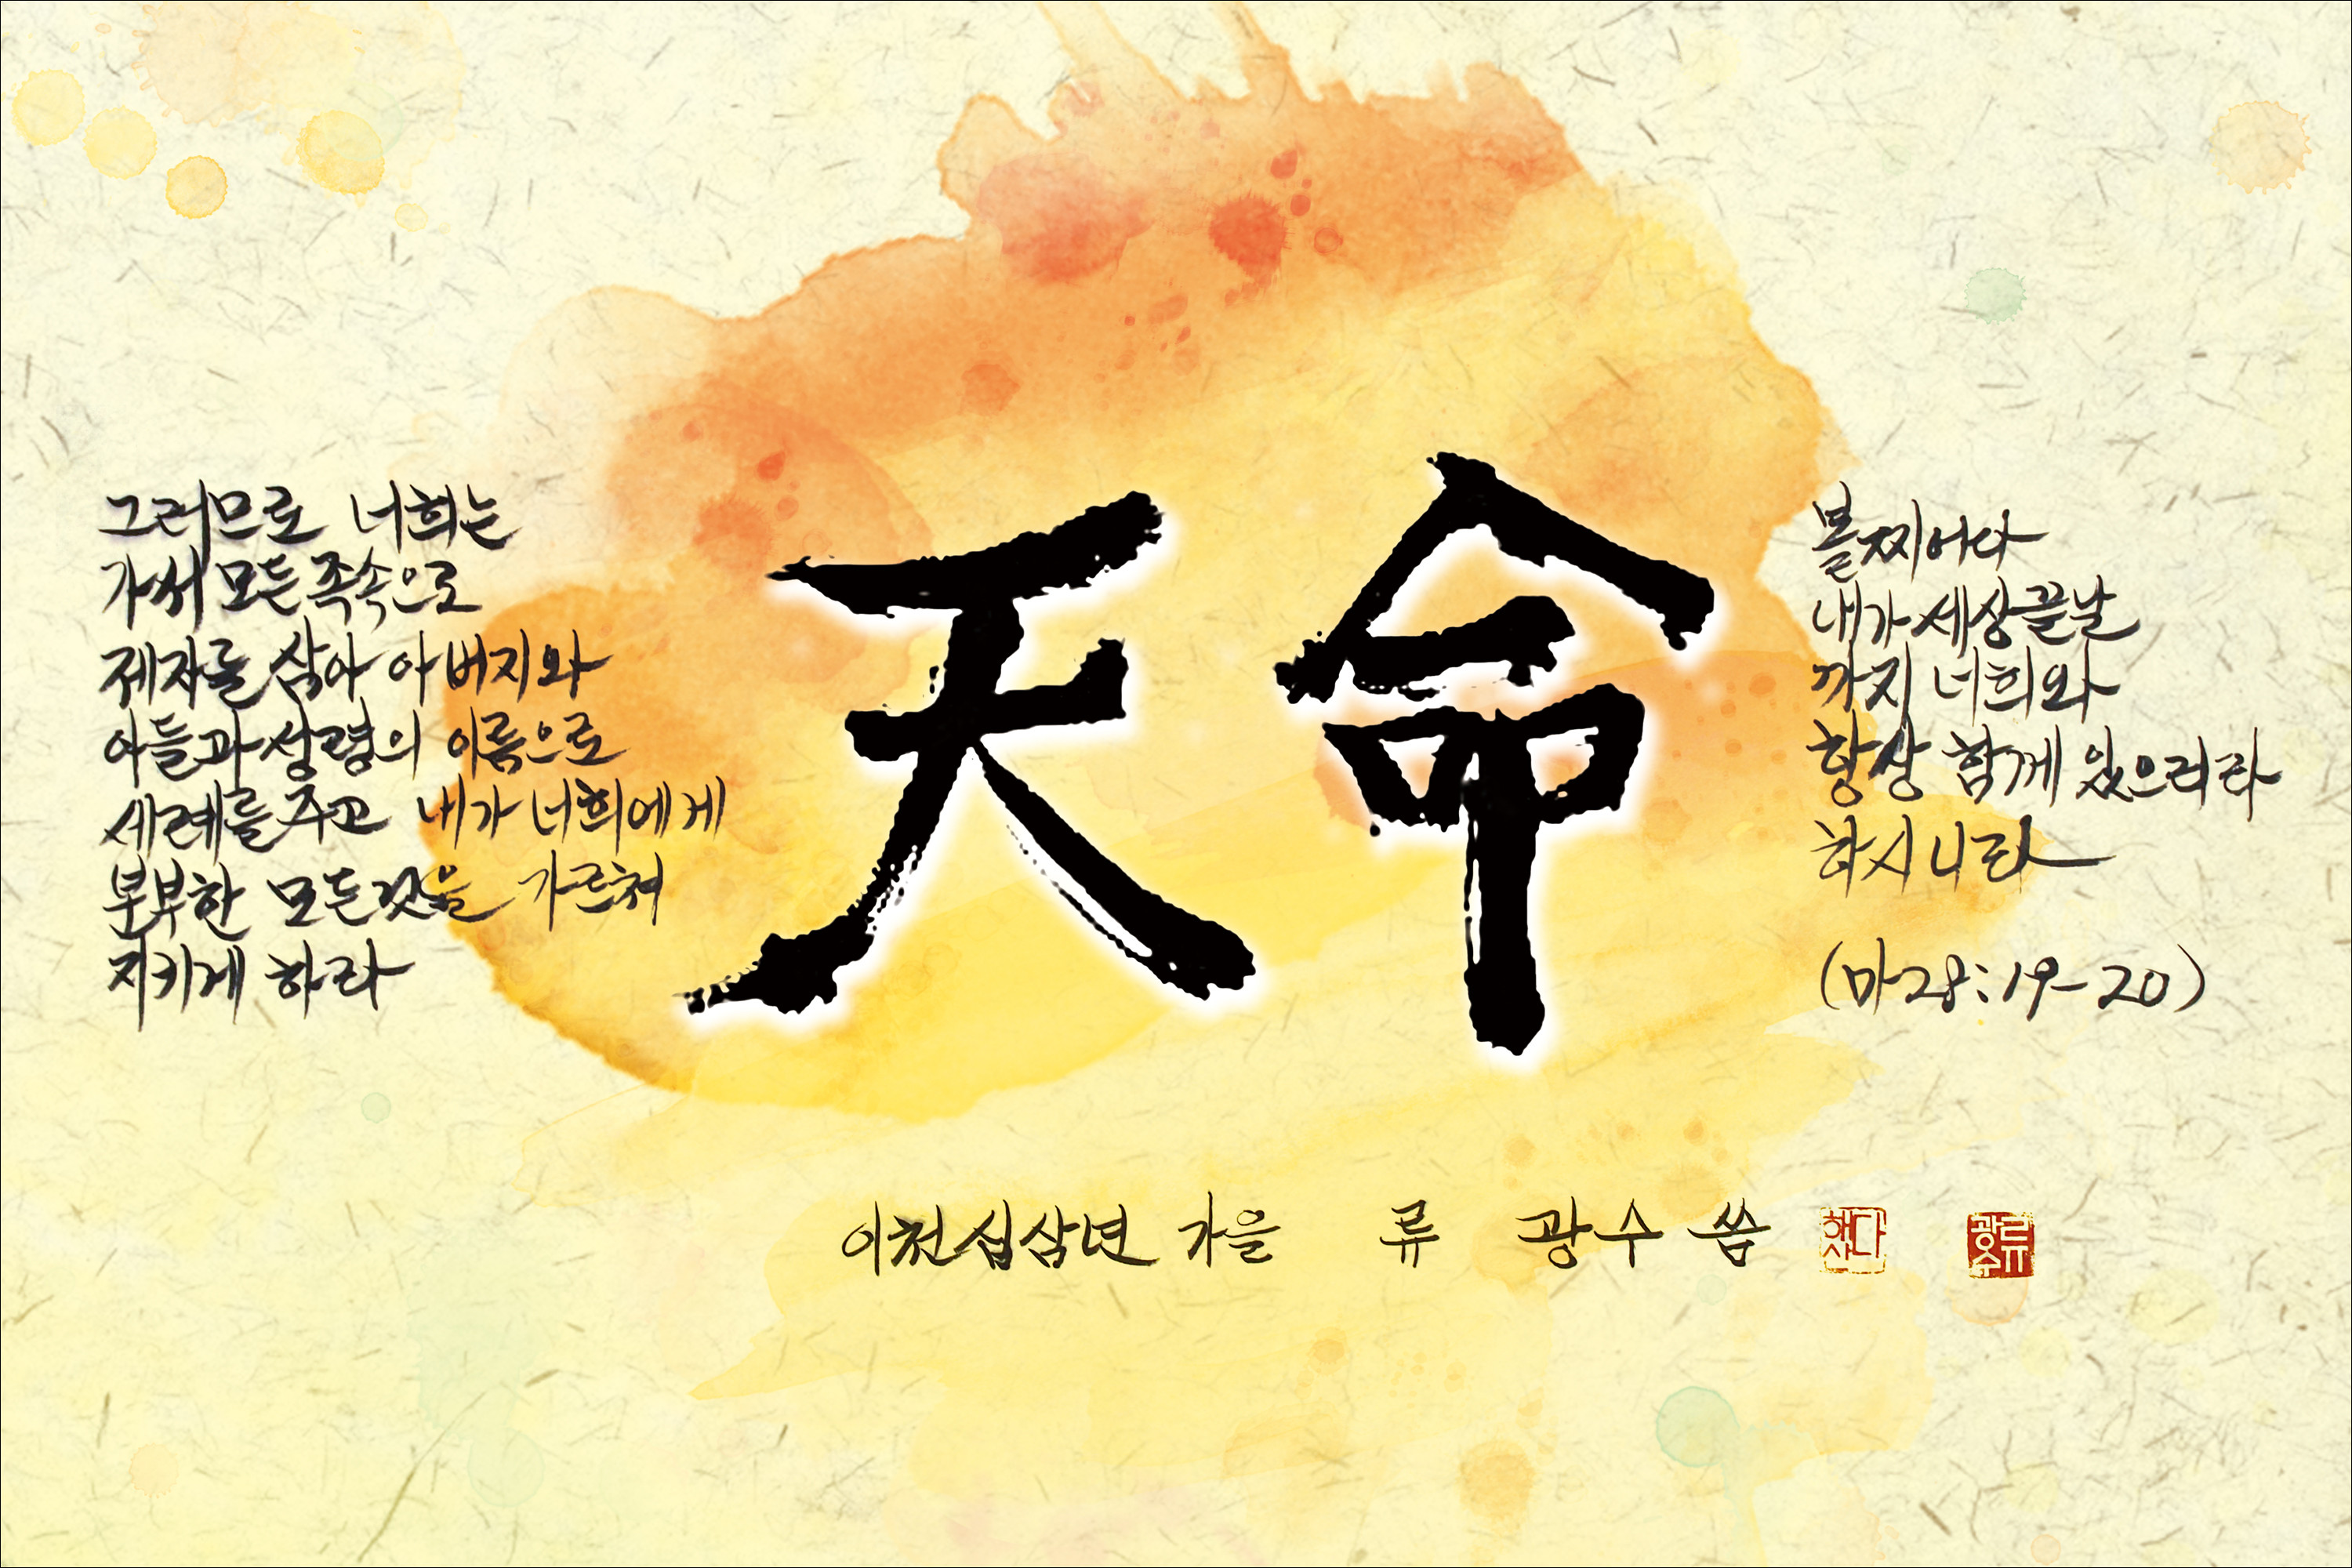 그러므로 너희는
가서 모든 족속으로
제자를 삼아 아버지와
아들과 성령의 이름으로
세례를 주고 내가 너희에게
분부한 모든것을 가르쳐
지키게 하라
天命
볼찌어다
내가 세상끝날
까지 너희와
항상 함께 있으리라
하시니라
(마28:19-20)
이천십삼년 가을 류 광수 씀
류광수